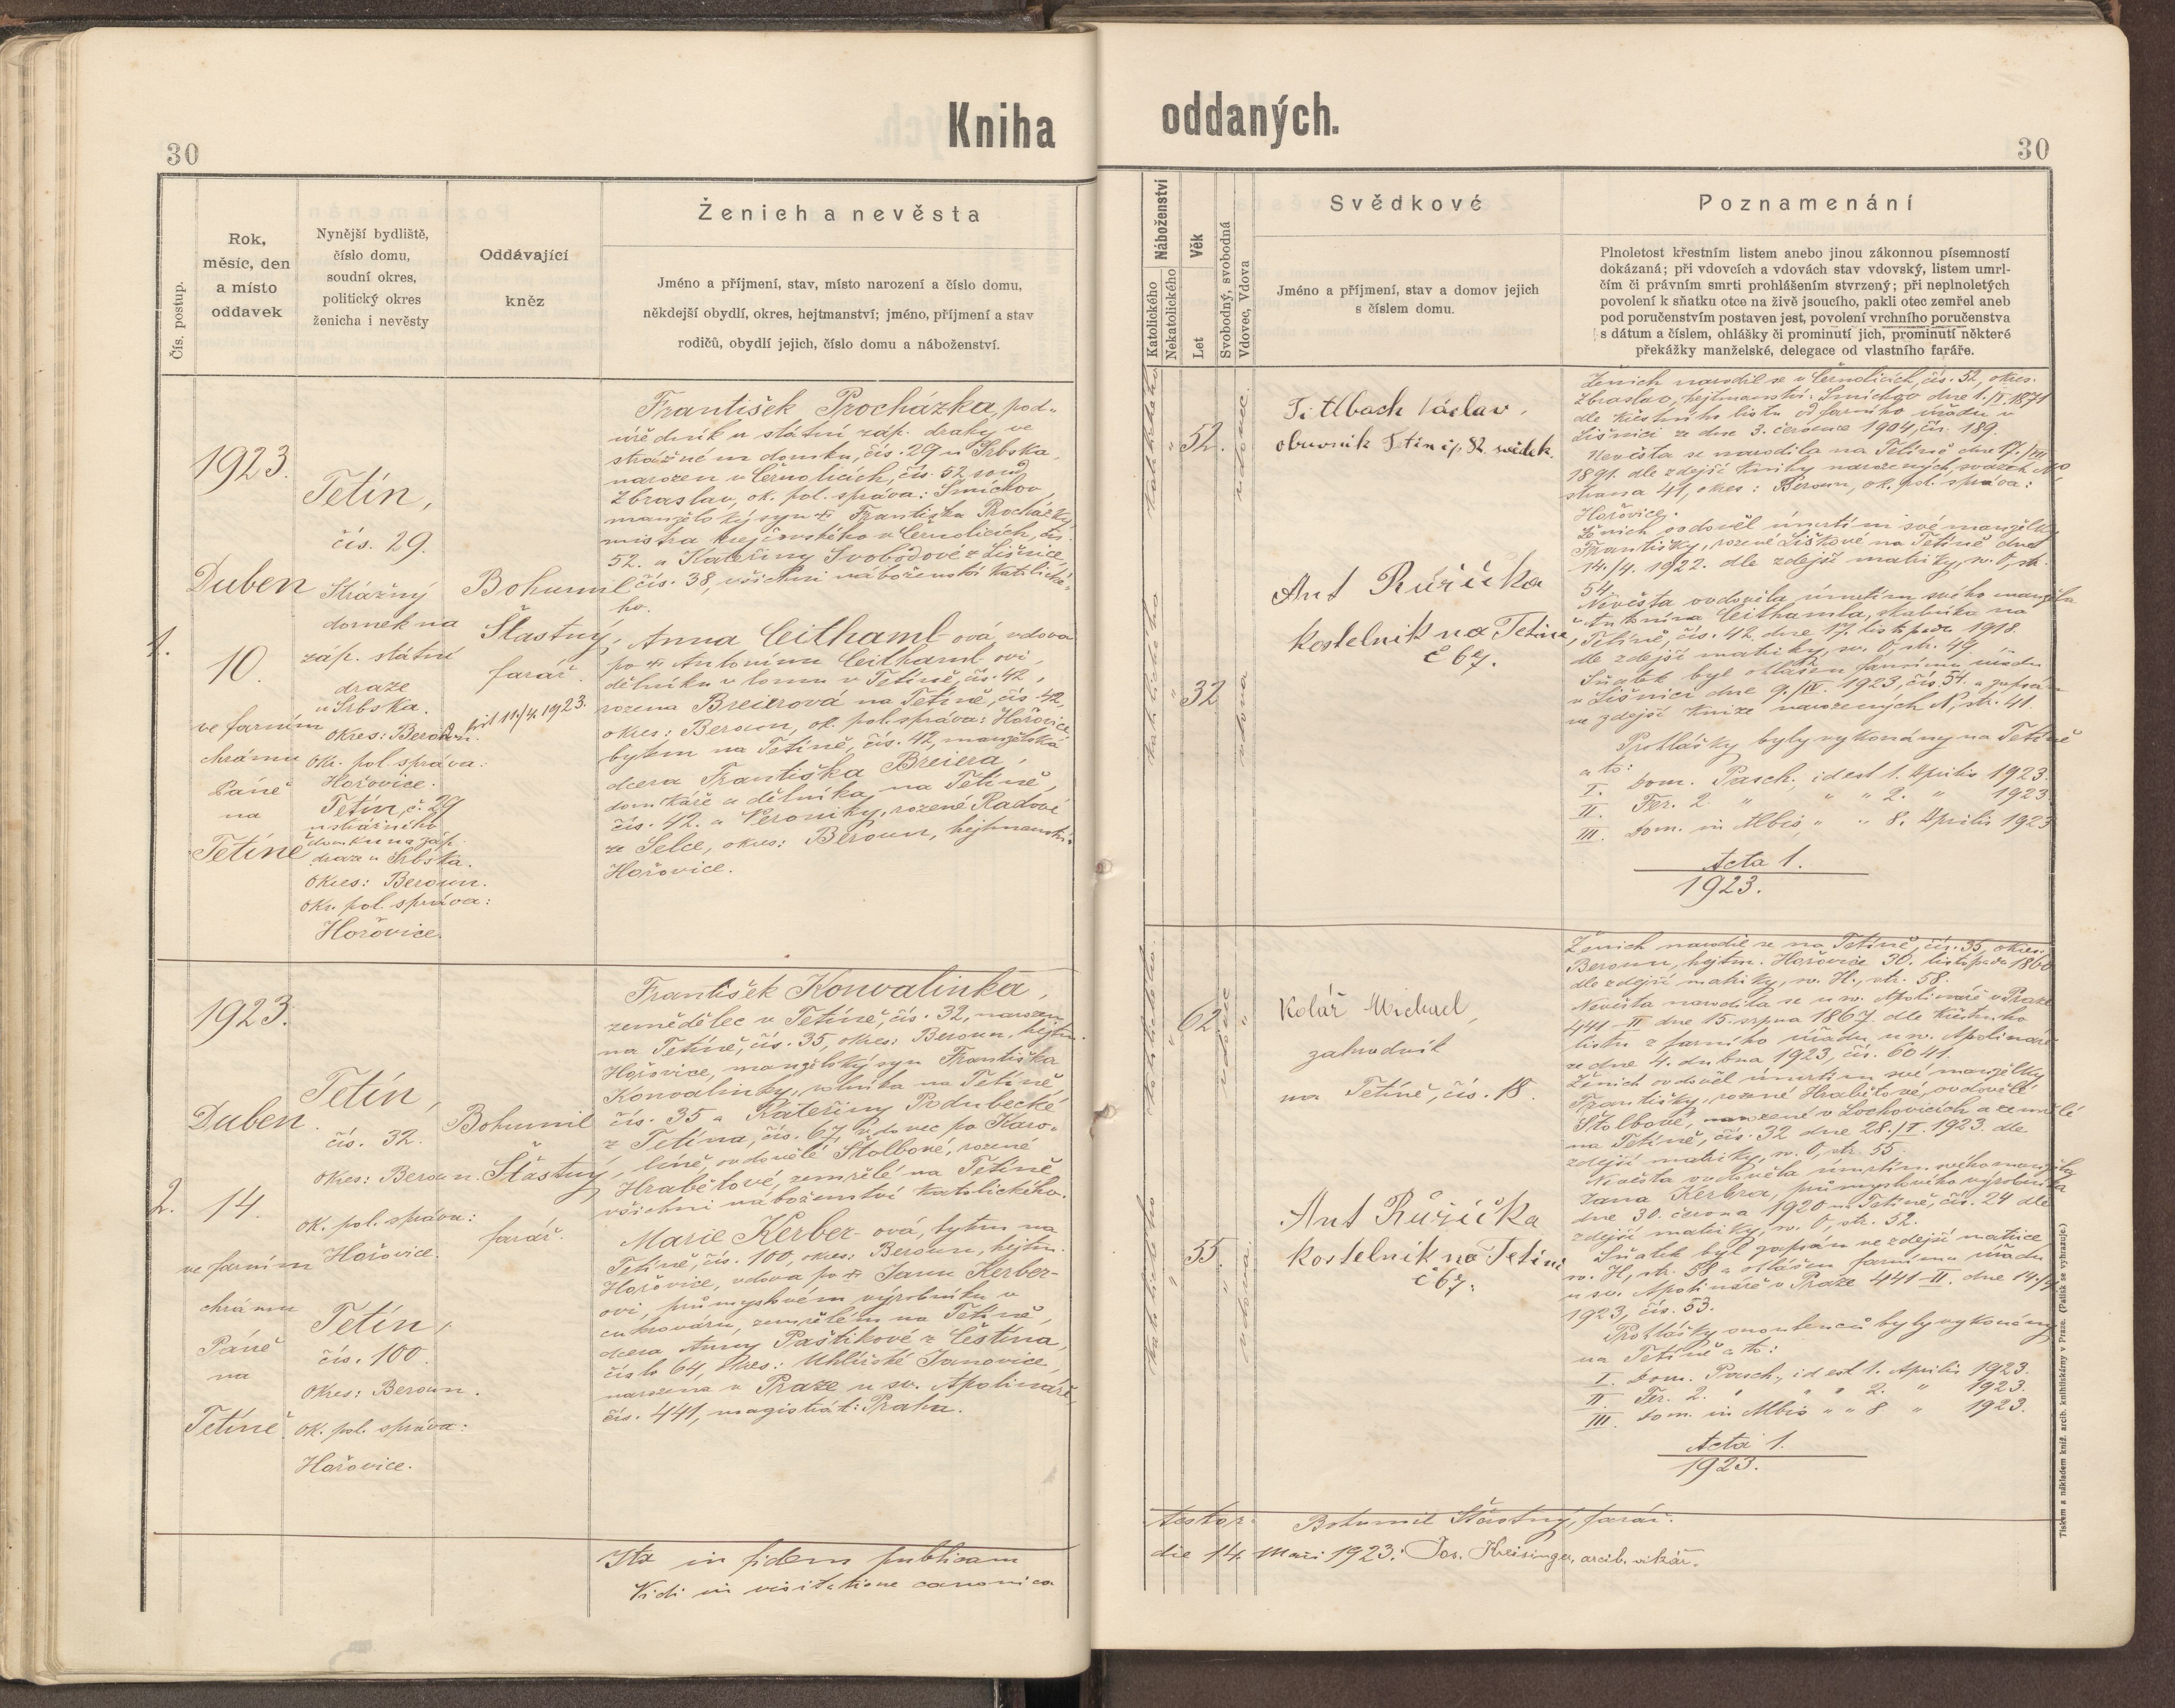 Kniha oddaných.
30
30
Čís. postup.
Rok,
měsíc, den
a místo
oddavek
Nynější bydliště,
číslo domu,
soudní okres,
politický okres
ženicha i nevěsty
Oddávající
kněz
Ženich a nevěsta
Jméno a příjmení, stav, místo narození a číslo domu,
někdejší obydlí, okres, hejtmanství; jméno, příjmení a stav
rodičů, obydlí jejich, číslo domu a náboženství.
Náboženství
Katolického
Nekatolického
Věk
Let
Svobodný, svobodná
Vdovec, Vdova
Svědkové
Jméno a příjmení, stav a domov jejich
s číslem domu.
Poznamenání
Plnoletost křestním listem anebo jinou zákonnou písemností
dokázaná; při vdovcích a vdovách stav vdovský, listem umrl-
čím či právním smrti prohlášením stvrzený; při neplnoletých
povolení k sňatku otce na živě jsoucího, pakli otec zemřel aneb
pod poručenstvím postaven jest, povolení vrchního poručenstva
s dátum a číslem, ohlášky či prominutí jich, prominutí některé
překážky manželské, delegace od vlastního faráře.
1.
1923.
Duben
10.
ve farním
chrámu
Páně
na
Tetíně
Tetín,
čís. 29.
Strážný
domek na
záp. státní
dráze
u Srbska.
Okres: Beroun.
Okr. pol. správa:
Hořovice.
Tetín, č. 29
u strážního
domku na záp.
dráze u Srbska.
Okres: Beroun.
Okr. pol. správa:
Hořovice.
Bohumil
Šťastný,
farář.
11./4. 1923.
František Procházka, pod-
úředník u státní záp. dráhy ve
strážném domku, čís. 29 u Srbska,
narozen v Černolicích, čís. 52, soud
Zbraslav, ok. pol. správa: Smíchov,
manželský syn † Františka Procházky,
mistra krejčovského v Černolicích, čís.
52. a Kateřiny Svobodové z Lišnice,
čís. 38, všichni náboženství katolické-
ho.
Anna Ceithaml-ová, vdova
po † Antonínu Ceithaml-ovi,
dělníku v lomu v Tetíně, čís. 42,
rozena Breierová na Tetíně, čís. 42,
okres: Beroun, ok. pol. správa: Hořovice,
bytem na Tetíně, čís. 42, manželská
dcera Františka Breiera,
domkáře a dělníka na Tetíně,
čís. 42. a Veroniky, rozené Radové
ze Selce, okres: Beroun, hejtmanství:
Hořovice.
katolického
"
52.
vdovec.
katolického
"
32
vdova
Titlbach Václav,
obuvník Tetín čp. 82. svědek.
Ant Růžička
kostelník na Tetíně,
č 67.
Ženich narodil se v Černolicích, čís. 52, okres.
Zbraslav, hejtmanství: Smíchov dne 1./IV. 1871
dle křestního listu od farního úřadu v
Lišnici ze dne 3. července 1904, čís. 189.
Nevěsta se narodila na Tetíně dne 17./VII
1891. dle zdejší knihy narozených, svazek
strana 41, okres: Beroun, ok. pol. správa:
Hořovice.
Ženich ovdověl úmrtím své manželky
Františky, rozené Liškové na Tetíně dne
14./4. 1922. dle zdejší matriky, sv. O, str.
54.
Nevěsta ovdověla úmrtím svého manžela
Antonína Ceithamla, skalníka na
Tetíně, čís. 42. dne 17. listopadu 1918.
dle zdejší matriky, sv. O, str. 49.
Sňatek byl ohlášen farnímu úřadu
v Lišnici dne 9./IV. 1923, čís. 54. a zapsán
ve zdejší knize narozených N, str. 41.
Prohlášky byly vykonány na Tetíně
a to:
I. Dom. Pasch., id est 1. Aprilis 1923.
II. Fer. 2. " " " 2. " 1923
III. Dom. in Albis, " " 8. Aprilis 1923
Acta 1.
1923.
2.
1923.
Duben.
14.
ve farním
chrámu
Páně
na
Tetíně.
Tetín,
čís. 32.
Okres: Beroun.
ok. pol. správa:
Hořovice.
Tetín,
čís. 100.
Okres: Beroun.
ok. pol. správa:
Hořovice.
Bohumil
Šťastný,
farář.
František Konvalinka,
zemědělec v Tetíně, čís. 32, narozen
na Tetíně, čís. 35, okres: Beroun, hejtm.
Hořovice, manželský syn Františka
Konvalinky, rolníka na Tetíně,
čís. 35 a Kateřiny Podubecké
z Tetína, čís. 67, vdovec po Karo-
líně, ovdovělé Štolbové, rozené
Hrabětové, zemřelé na Tetíně,
všichni náboženství katolického.
Marie Kerber-ová, bytem na
Tetíně, čís. 100, okres: Beroun, hejtm.
Hořovice, vdova po † Janu Kerber-
ovi, průmyslovém výrobníku v
cukrováru, zemřelém na Tetíně,
dcera Anny Paštikové z Čestína,
číslo 64, okres: Uhlířské Janovice,
narozena v Praze u sv. Apolináře,
čís. 441, magistrát: Praha.
katolického.
"
62
vdovec
"
katolického
"
55.
vdova.
Kolář Michael,
zahradník
na Tetíně, čís. 18.
Ant Růžička
kostelník na Tetíně
č 67.
Ženich narodil se na Tetíně, čís. 35, okres
Beroun, hejtm. Hořovice 30. listopadu 1860
dle zdejší matriky, sv. H., str. 58.
Nevěsta narodila se u sv. Apolináře v Praze
441-II dne 15. srpna 1867. dle křestního
listu z farního úřadu u sv. Apolináře
ze dne 4. dubna 1923, čís. 6041.
Ženich ovdověl úmrtím své manželky
Františky, rozené Hrabětové, ovdovělé
Štolbové, narozené v Lochovicích a zemřelé
na Tetíně, čís. 32 dne 28./I. 1923. dle
zdejší matriky, sv. O, str. 55.
Nevěsta ovdověla úmrtím svého manžela
Jana Kerbra, průmyslového výrobníka
dne 30. června 1920 na Tetíně, čís. 24 dle
zdejší matriky, sv. O, str. 52.
Sňatek byl zapsán ve zdejší matrice
sv. H, str. 58 a ohlášen farnímu úřadu
u sv. Apolináře v Praze 441-II. dne 14./4
1923, čís. 53.
Prohlášky snoubenců byly vykonány
na Tetíně a to:
I. Dom. Pasch., id est 1. Aprilis 1923.
II. Fer. 2. " " " 2. " 1923.
III. Dom. in Albis " " 8. " 1923.
Acta 1.
1923.
Ita in fidem publicam testor: Bohumil Šťastný, farář.
Vidi in visitatione canonica die 14. Maii 1923: Jos. Kreisinger, arcib. vikář.
Tiskem a nákladem kníž. arcib. knihtiskárny v Praze. (Patisk se vyhrazuje.)